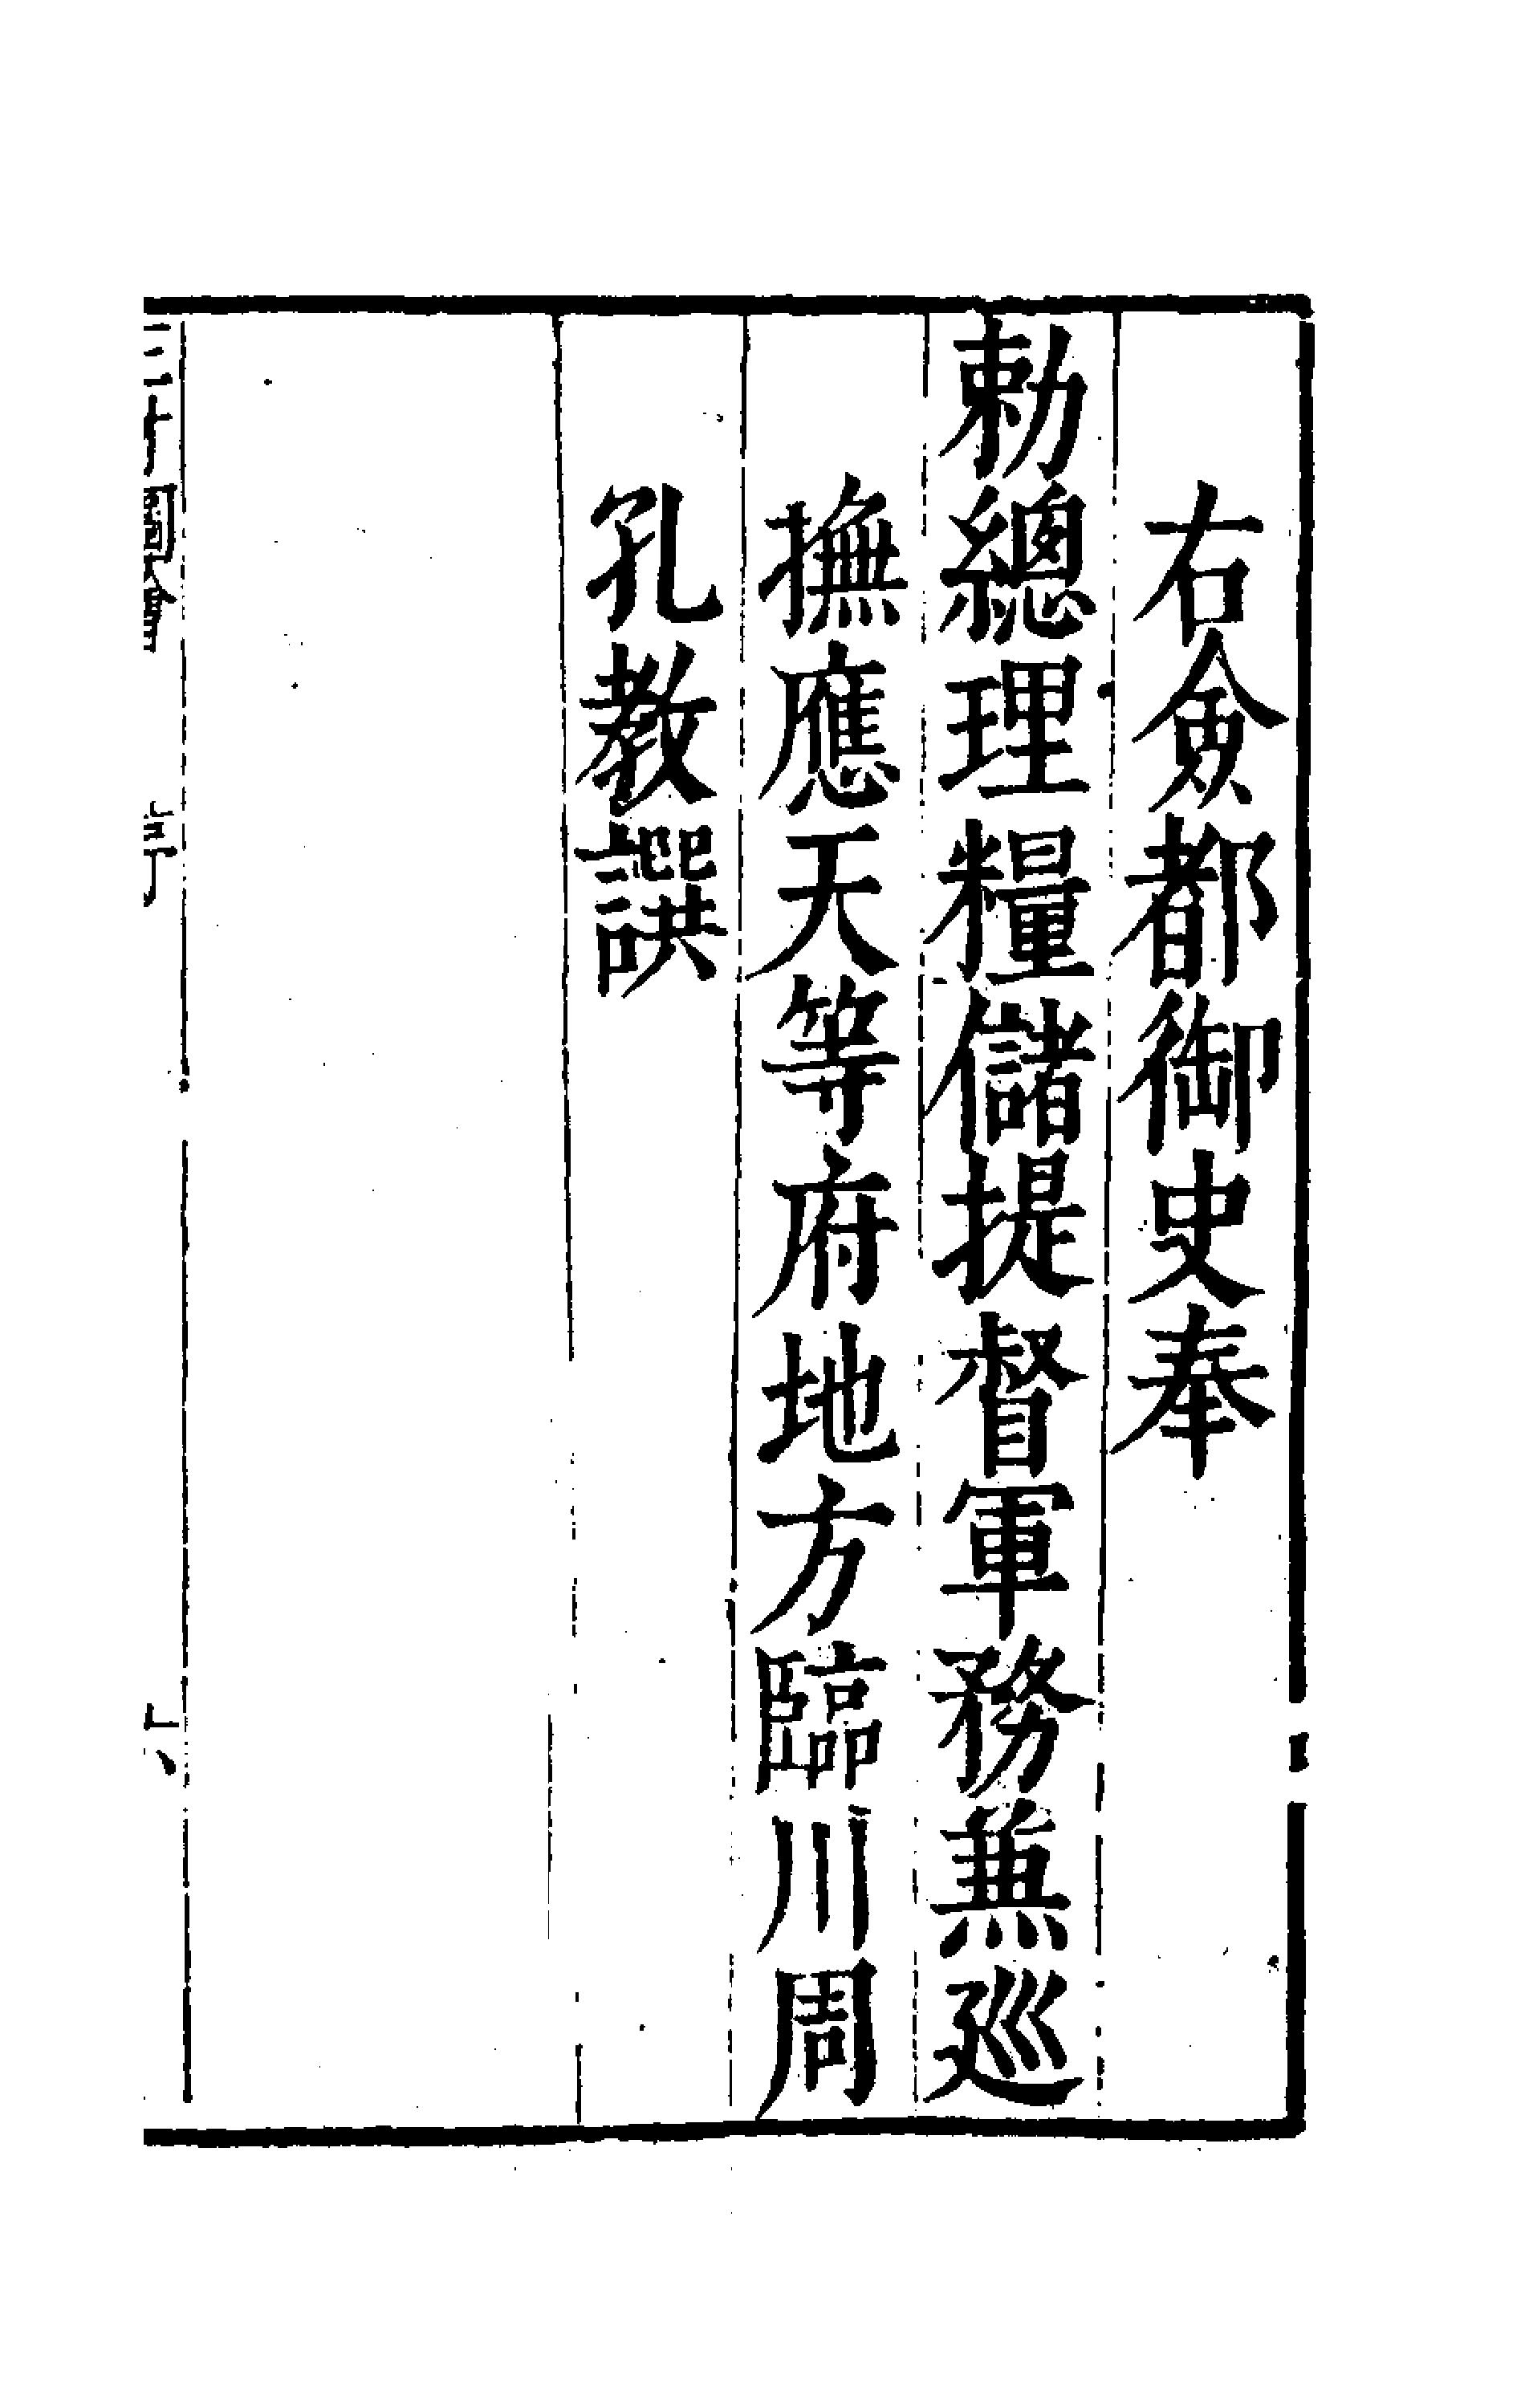 右僉都御史奉
勅總理糧儲提督軍務兼巡
撫應天等府地方臨川周
孔教譔